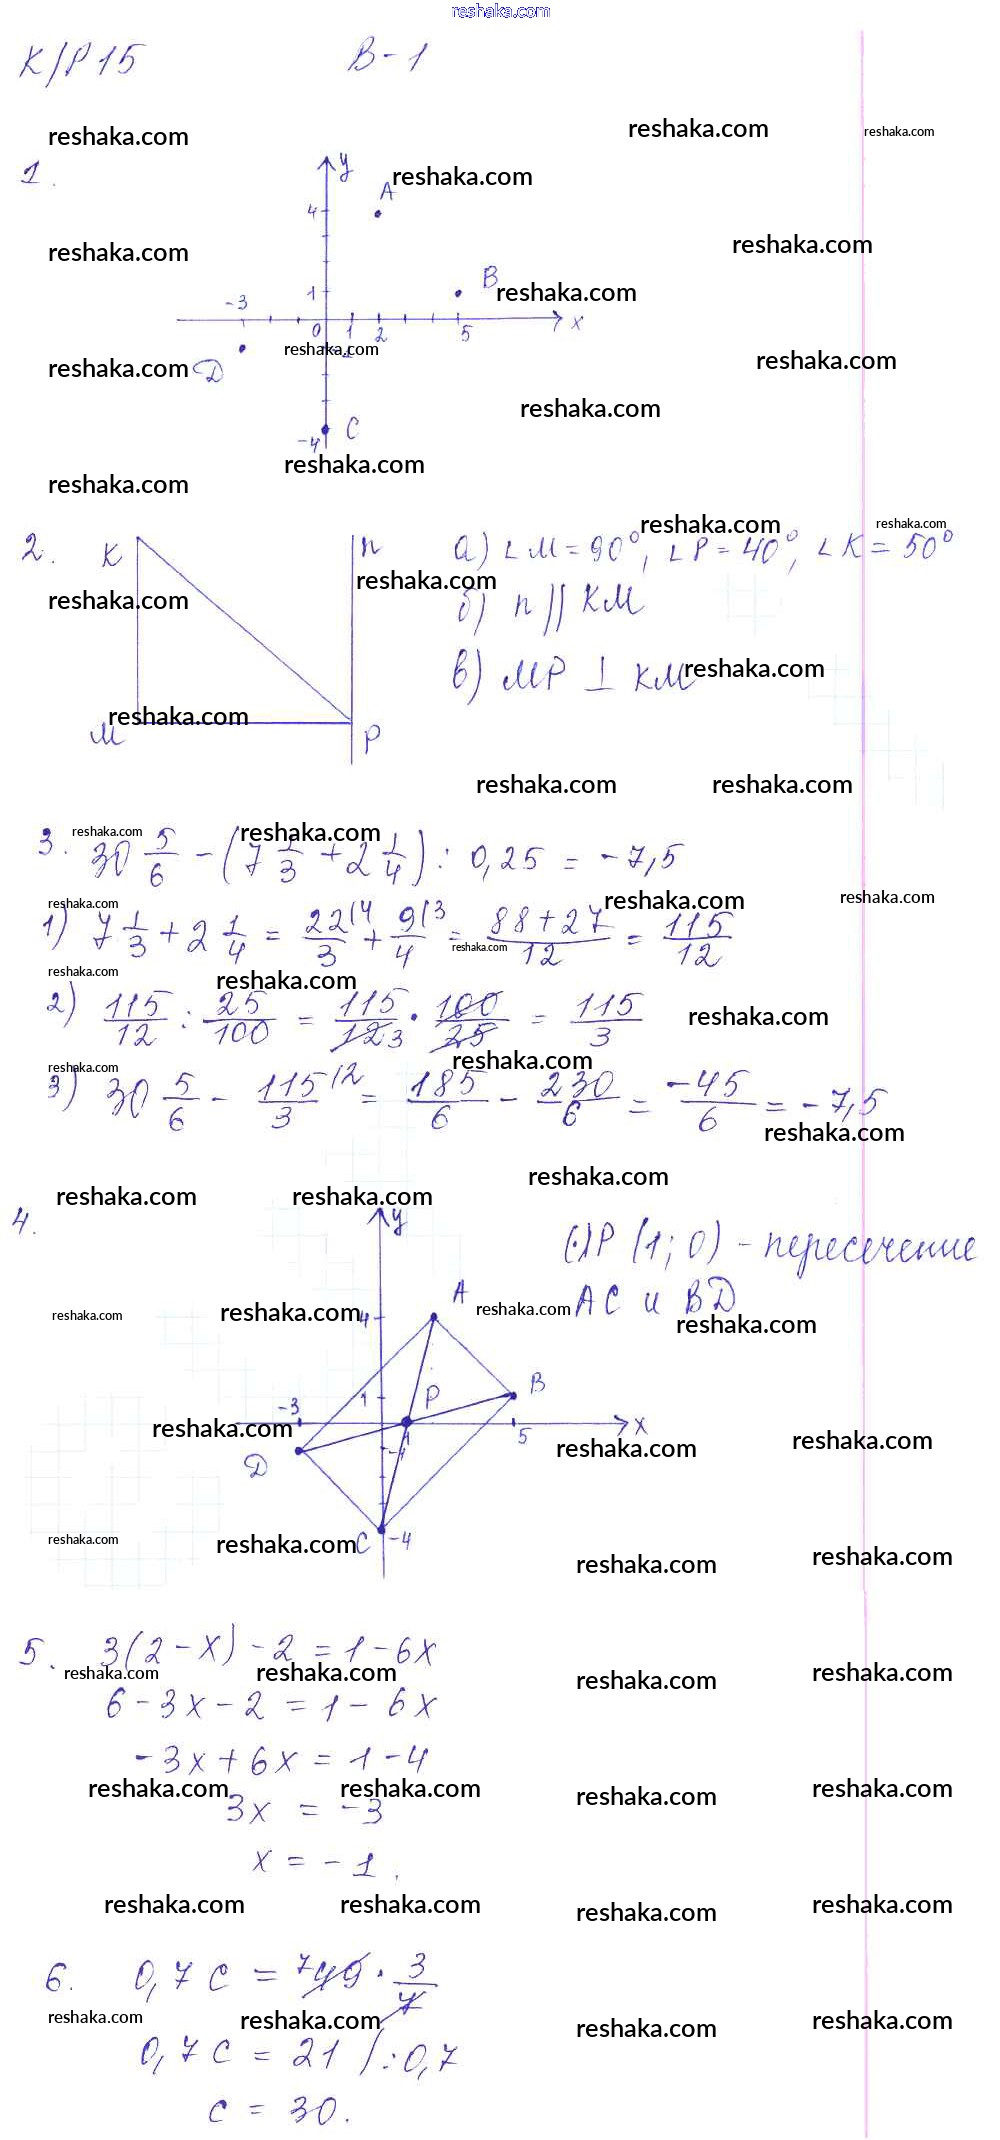 reshaka.com
К/Р 15 В-1
reshaka.com reshaka.com reshaka.com
1. y reshaka.com
A
4
reshaka.com reshaka.com
B
-3 1 reshaka.com
0 1 2 5 x
reshaka.com -1 reshaka.com
reshaka.com D
reshaka.com
-4 C
reshaka.com
reshaka.com
2. K n reshaka.com reshaka.com
а) ∠M = 90°, ∠P = 40°, ∠K = 50°
reshaka.com reshaka.com
б) n || KM
в) MP ⊥ KM reshaka.com
reshaka.com
M P
reshaka.com reshaka.com
reshaka.com reshaka.com
3. 30 5/6 - (7 1/3 + 2 1/4) : 0,25 = -7,5
reshaka.com reshaka.com reshaka.com
1) 7 1/3 + 2 1/4 = 22/3 (4 + 9/4 (3 = 88+27/12 = 115/12
reshaka.com
reshaka.com reshaka.com
2) 115/12 : 25/100 = 115/12 3 · 100/25 = 115/3 reshaka.com
reshaka.com reshaka.com
3) 30 5/6 - 115/3 (2 = 185/6 - 230/6 = -45/6 = -7,5
reshaka.com
reshaka.com
reshaka.com reshaka.com
4. y (·)P (1; 0) - пересечение
A AC и BD
reshaka.com reshaka.com 4 reshaka.com reshaka.com
B
-3 1 P
reshaka.com x reshaka.com
1 5 reshaka.com
D -1
reshaka.com reshaka.com C -4
reshaka.com reshaka.com
5. 3(2 - x) - 2 = 1 - 6x
reshaka.com reshaka.com reshaka.com reshaka.com
6 - 3x - 2 = 1 - 6x
-3x + 6x = 1 - 4
reshaka.com reshaka.com reshaka.com reshaka.com
3x = -3
x = -1.
reshaka.com reshaka.com reshaka.com reshaka.com
6. 0,7 c = 7 49 · 3/7
reshaka.com reshaka.com reshaka.com reshaka.com
0,7 c = 21 | : 0,7
c = 30.